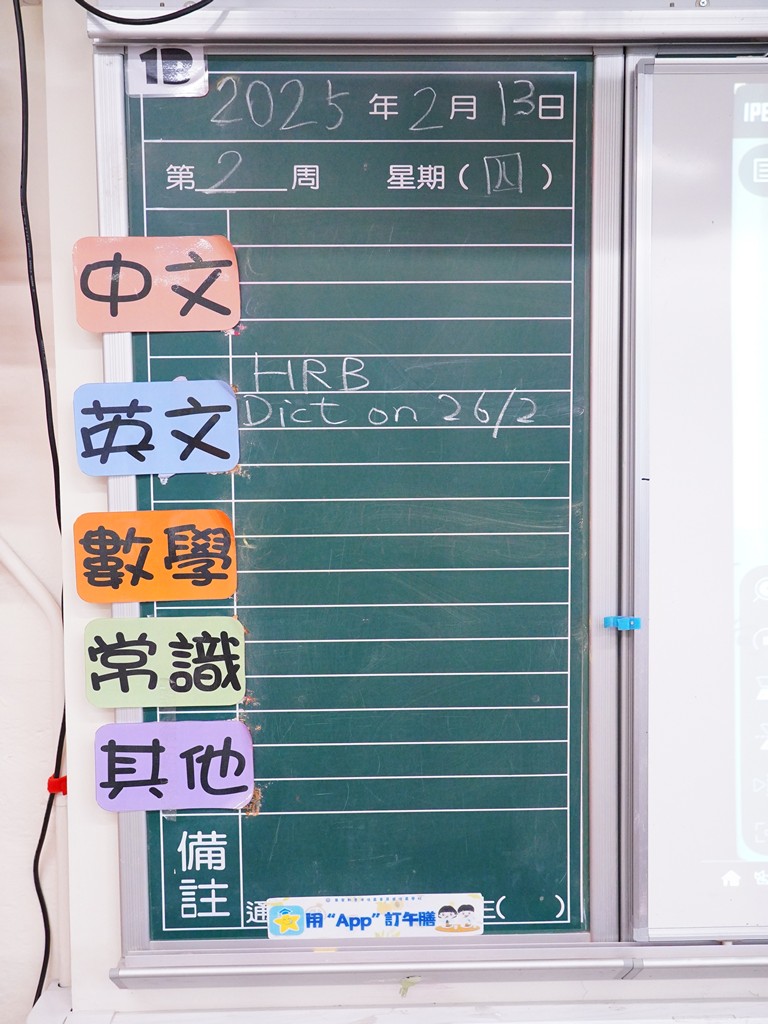 1D
2025年2月13日
第2周 星期(四)
中文
HRB
英文 Dict on 26/2
數學
常識
其他
備註
通
用“App”訂午膳
( )
IPE